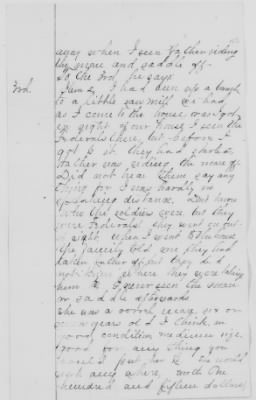 away when I seen Father riding
the mare and saddle off
To the 3rd he says
3rd. I had been up a
to a little saw mill we had
as I come to the house, was got
in sight of our house I seen the
Federals there but before I
got to it they had started
Father was riding the mare off
Did not hear them say any
thing for I was hardly in
distance, Dont know
who the soldiers were but they
were Federals they went out
sight, when I went to the house
family told me they had
taken father off but they did
not know where they were taking
him to I never seen the mare
or saddle afterwards
She was a sorrel mare, six or
years old I think, in
good condition medium size
good for any thing you
wanted put her to would
work any where, worth One
hundred and fifteen dollars